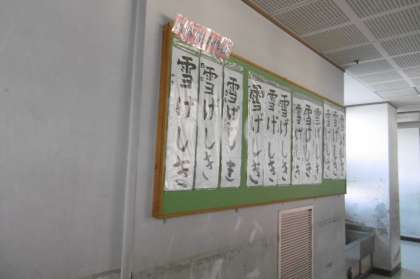 雪げしき
雪げしき
雪げしき
雪げしき
雪げしき
雪げしき
雪げしき
雪げしき
雪げしき